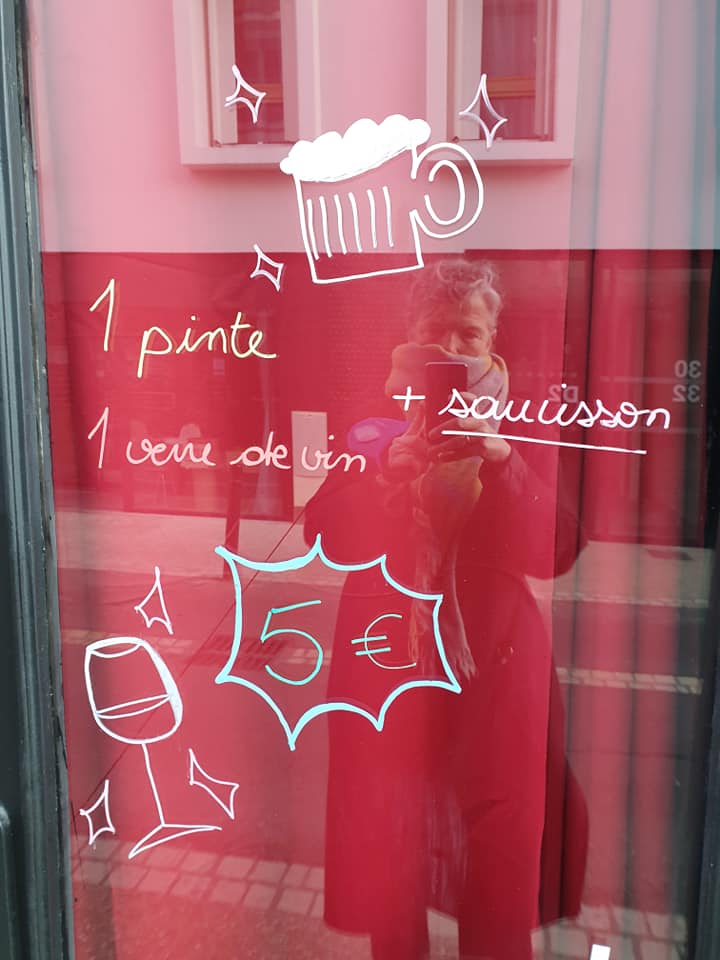 1 pinte
+ saucisson
1 verre de vin
5 €
30
32
D2